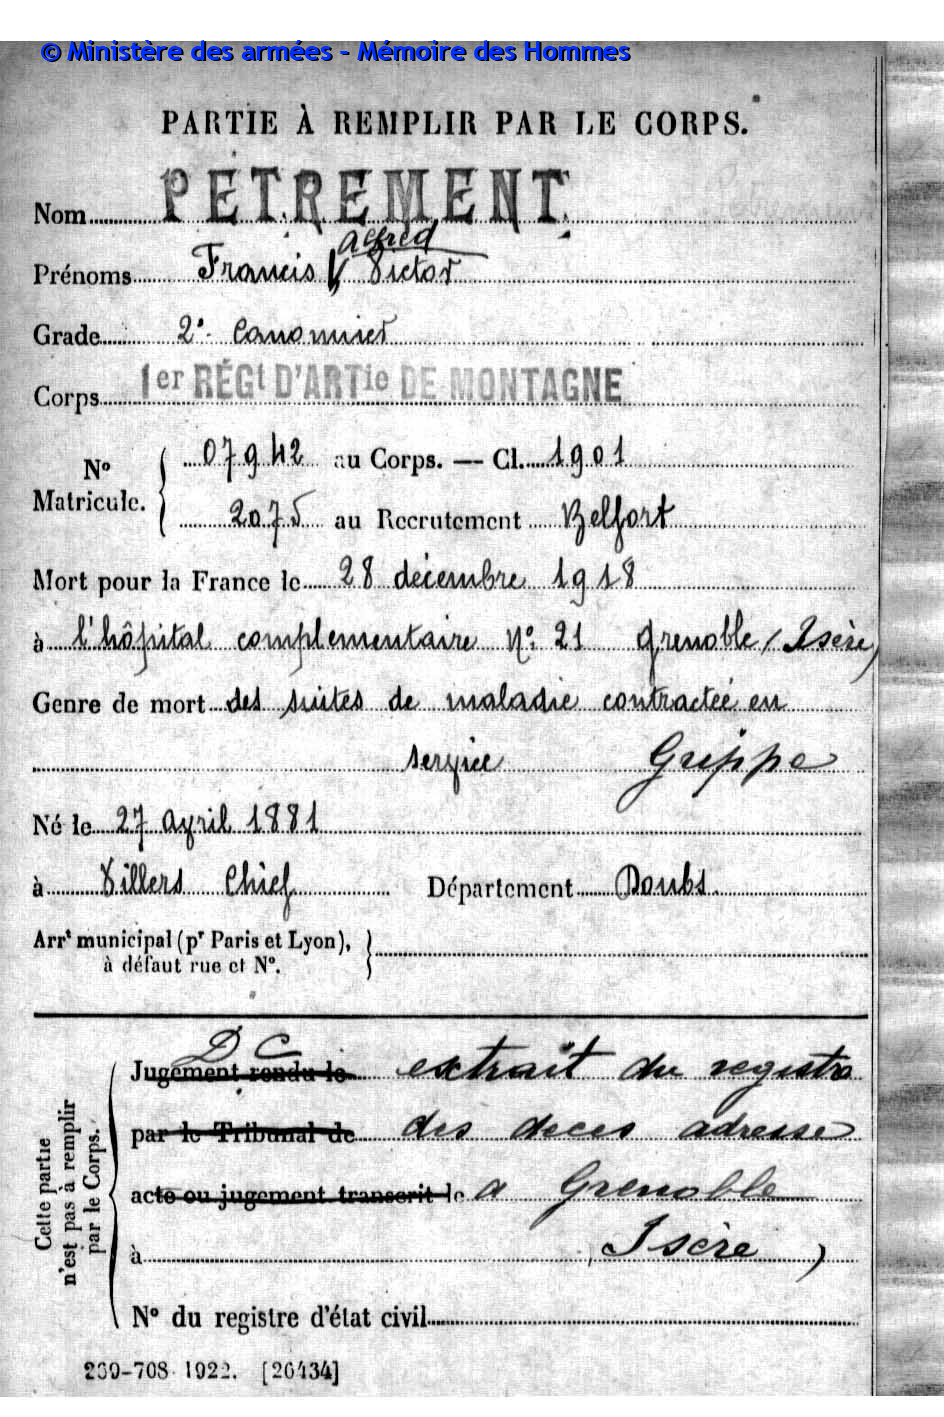 © Ministère des armées - Mémoire des Hommes
PARTIE À REMPLIR PAR LE CORPS.
Nom PETREMENT
Alfred
Prénoms Francis Victor
Grade 2e Canonnier
Corps 1er RÉGt D'ARTie DE MONTAGNE
No Matricule. { 07942 au Corps. — Cl. 1901
2075 au Recrutement Belfort
Mort pour la France le 28 décembre 1918
à l'hôpital complémentaire No 21 Grenoble (Isère)
Genre de mort des suites de maladie contractée en
service Grippe
Né le 27 avril 1881
à Villers Chief Département Doubs
Arrt municipal (pr Paris et Lyon), }
à défaut rue et No.
Cette partie n'est pas à remplir par le Corps.
D C
Jugement rendu le extrait du registre
par le Tribunal de des deces adresse
acte ou jugement transcrit le a Grenoble
à Isère )
No du registre d'état civil
239-708 1922. [26434]